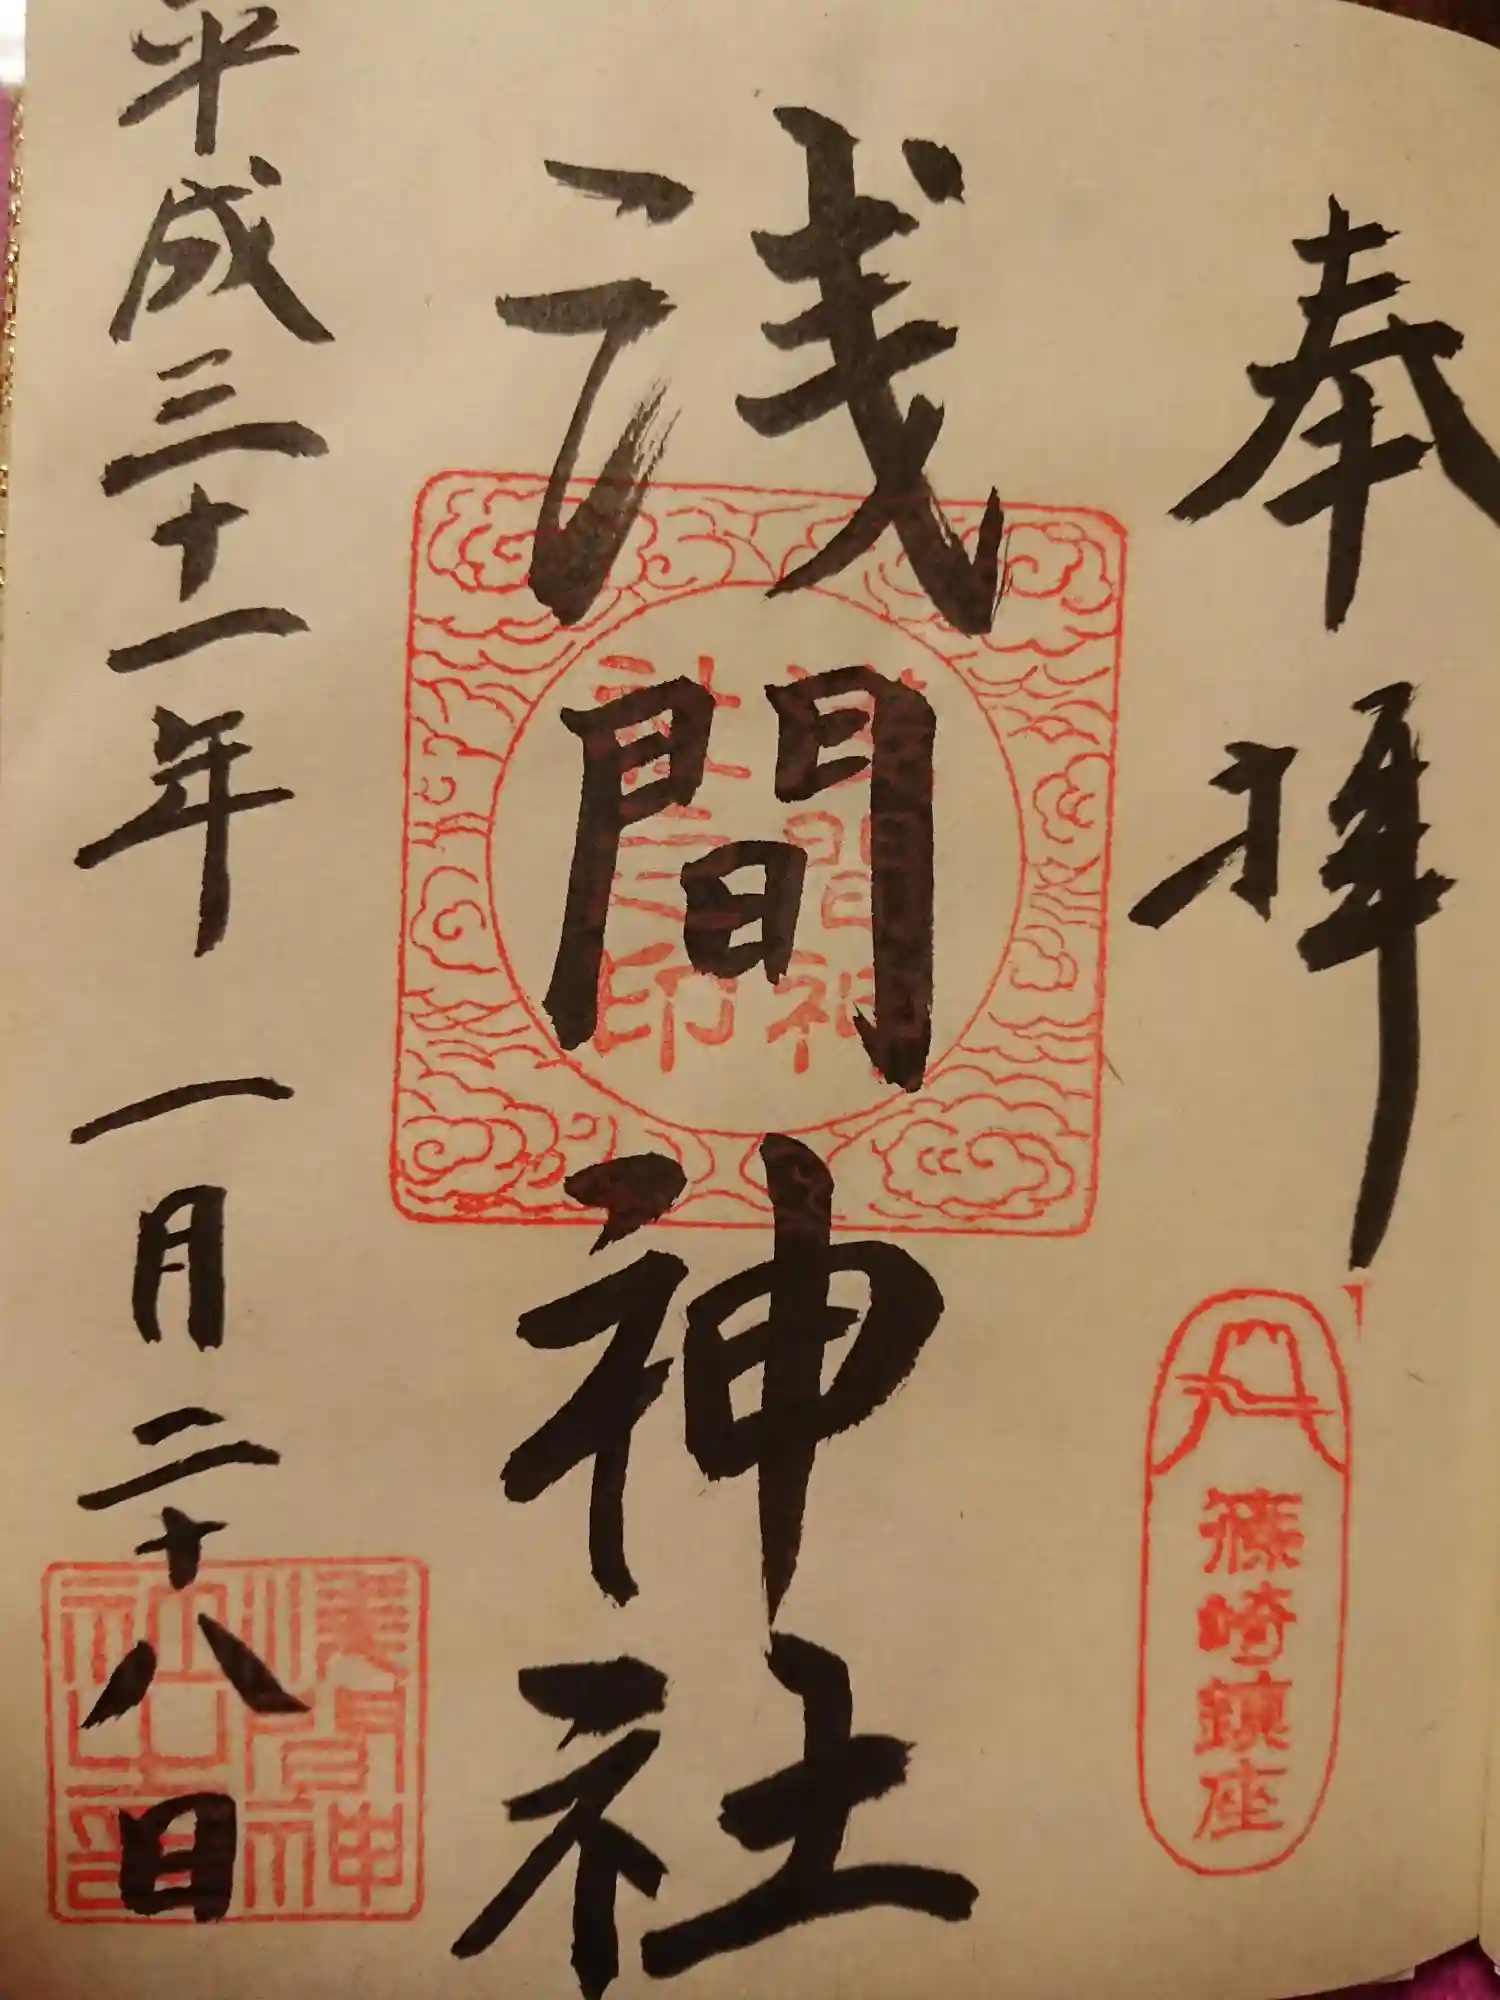 奉拝
篠崎鎮座
浅間神社
浅間神
社之印
平成三十一年 一月二十八日
浅間神
社之印